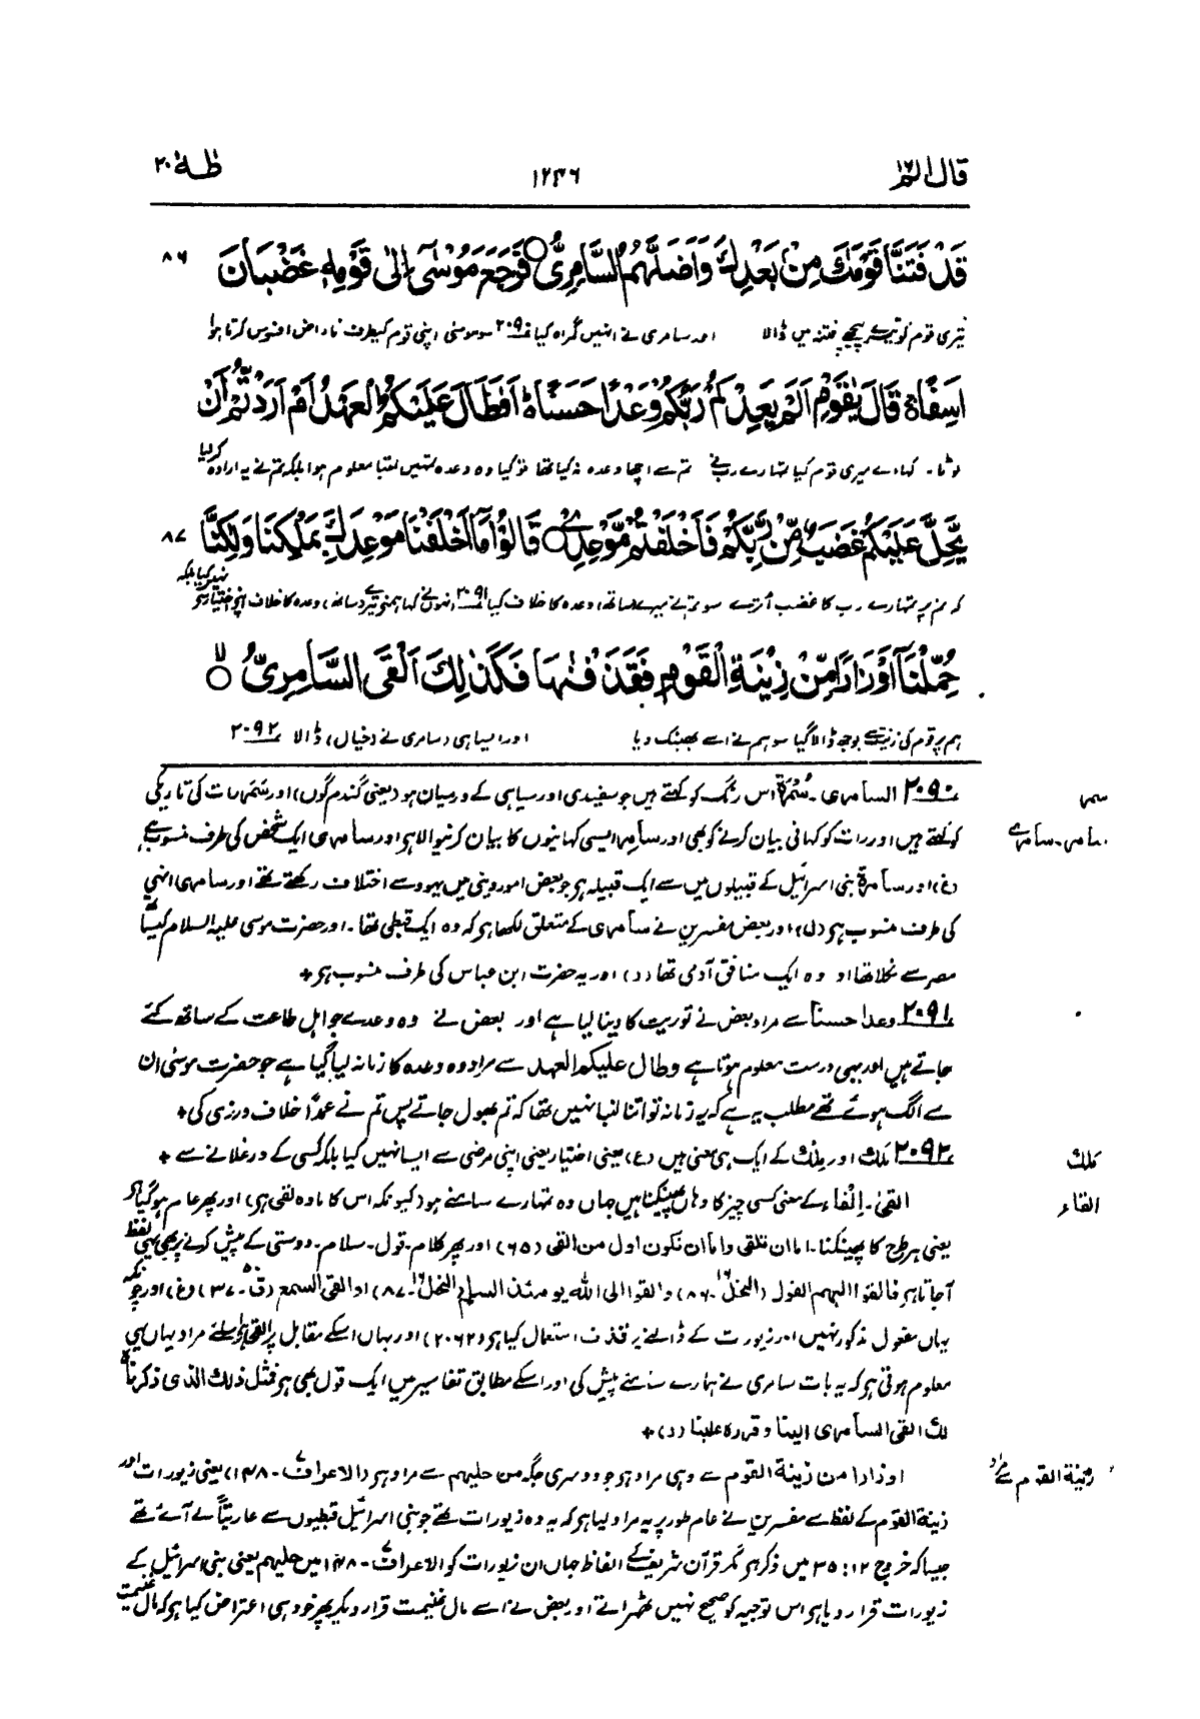 قال الم ۱۶ ۱۲۴۶ طٰهٰ ۲۰
قَدْ فَتَنَّا قَوْمَكَ مِنْۢ بَعْدِكَ وَاَضَلَّهُمُ السَّامِرِيُّ ۝ فَرَجَعَ مُوْسٰۤى اِلٰى قَوْمِهٖ غَضْبَانَ ۸۶
تیری قوم کو تیرے پیچھے فتنہ میں ڈالا اور سامری نے انہیں گمراہ کیا ۲۰۹۰ سو موسیٰ اپنی قوم کیطرف ناراض افسوس کرتا ہوا
اَسِفًا ۚ قَالَ يٰقَوْمِ اَلَمْ يَعِدْكُمْ رَبُّكُمْ وَعْدًا حَسَنًا ؕ اَفَطَالَ عَلَيْكُمُ الْعَهْدُ اَمْ اَرَدْتُّمْ اَنْ
لوٹا۔ کہا اے میری قوم کیا تمہارے رب نے تم سے اچھا وعدہ نہ کیا تھا تو کیا وہ وعدہ تمہیں لمبا معلوم ہوا بلکہ تم نے یہ ارادہ کرلیا
يَّحِلَّ عَلَيْكُمْ غَضَبٌ مِّنْ رَّبِّكُمْ فَاَخْلَفْتُمْ مَّوْعِدِيْ ۝ قَالُوْا مَاۤ اَخْلَفْنَا مَوْعِدَكَ بِمَلْكِنَا وَلٰكِنَّا ۸۷
کہ تم پر تمہارے رب کا غضب اُترے سو تم نے میرے (ساتھ) وعدہ کا خلاف کیا ۲۰۹۱ انہوں نے کہا ہمنے تیرے (ساتھ) وعدہ کا خلاف اپنے اختیار سے نہیں کیا بلکہ
حُمِّلْنَاۤ اَوْزَارًا مِّنْ زِيْنَةِ الْقَوْمِ فَقَذَفْنٰهَا فَكَذٰلِكَ اَلْقَى السَّامِرِيُّ ۝ ۙ
ہم پر قوم کی زینت سے بوجھ ڈالا گیا سو ہم نے اسے پھینک دیا اور ایسا ہی (سامری نے (خیال) ڈالا ۲۰۹۲
سمر
۲۰۹۰ السامری۔ سُمْرَة اس رنگ کو کہتے ہیں جو سفیدی اور سیاہی کے درمیان ہو (یعنی گندم گوں) اور سَمَر رات کی تاریکی
سامر۔ سامری
کو کہتے ہیں اور رات کو کہانی بیان کرنے کو بھی اور سامر ایسی کہانیوں کا بیان کرنیوالا ہو اور سامری ایک شخص کی طرف منسوب ہے
(غ) اور سامرة بنی اسرائیل کے قبیلوں میں سے ایک قبیلہ ہو جو بعض امور دینی میں یہود سے اختلاف رکھتے تھے اور سامری انہی
کی طرف منسوب ہو (ل) اور بعض مفسرین نے سامری کے متعلق لکھا ہو کہ وہ ایک قبطی تھا۔ اور حضرت موسی علیہ السلام کیساتھ
مصر سے نکلا تھا اور وہ ایک منافق آدمی تھا (د) اور یہ حضرت ابن عباس کی طرف منسوب ہو +
۲۰۹۱ وعدا حسنا سے مراد بعض نے توریت کا دینا لیا ہے اور بعض نے وہ وعدے جو اہل طاعت کے ساتھ کئے
جاتے ہیں اور یہی درست معلوم ہوتا ہے و طال علیکم العہد سے مراد وہ وعدہ کا زمانہ لیا گیا ہے جو حضرت موسیٰ ان
سے الگ ہوئے تھے مطلب یہ ہے کہ یہ زمانہ تو اتنا لمبا نہیں تھا کہ تم بھول جاتے پس تم نے عمداً خلاف ورزی کی +
ملك
۲۰۹۲ مَلْك اور مِلْك کے ایک ہی معنی ہیں (ع) یعنی اختیار یعنی اپنی مرضی سے ایسا نہیں کیا بلکہ کسی کے ورغلانے سے +
القاء
القیٰ۔ اِلْقاء کے معنی کسی چیز کا وہاں پھینکنا ہیں جہاں وہ تمہارے سامنے ہو (کیونکہ اس کا مادہ لقی ہی) اور پھر عام ہوگیا ہو
یعنی ہر طرح کا پھینکنا۔ اما ان تلقی واما ان نکون اول من القی (۶۵) اور پھر کلام۔ قول۔ سلام۔ دوستی کے پیش کرنے پر بھی یہی لفظ
آجاتا ہو فالقوا الیہم القول (النحل۱۶۔ ۸۶) والقوا الی اللہ یومئذ السلم (النحل۱۶۔ ۸۷) او القی السمع (ق۵۰۔ ۳۷) (غ) اور چونکہ
یہاں مفعول مذکور نہیں اور زیورت کے ڈالنے پر قذف استعمال کیا ہو (۲۰۶۲) اور یہاں اسکے مقابل پر القی ہو اسلئے مراد یہاں یہی
معلوم ہوتی ہو کہ یہ بات سامری نے ہمارے سامنے پیش کی اور اسکے مطابق تفاسیر میں ایک قول بھی ہو فمثل ذلك الذی ذکرنا
لك القی السامری الینا و قررہ علینا (ر) +
زینة القوم سے مراد
اوزارا من زینة القوم سے وہی مراد ہو جو دوسری جگہ من حلیہم سے مراد ہو (الاعراف۷۔ ۱۴۸) یعنی زیورات اور
زینة القوم کے لفظ سے مفسرین نے عام طور پر یہ مراد لیا ہو کہ یہ وہ زیورات تھے جو بنی اسرائیل قبطیوں سے عاریتاً لے آئے تھے
جیسا کہ خروج ۱۲: ۳۵ میں ذکر ہو مگر قرآن شریف کے الفاظ جہاں ان زیورات کو الاعراف۷۔ ۱۴۸ میں حلیہم یعنی بنی اسرائیل کے
زیورات قرار دیا ہو اس توجیہ کو صحیح نہیں ٹھہراتے اور بعض نے اسے مال غنیمت قرار دیکر پھر خود ہی اعتراض کیا ہو کہ مال غنیمت